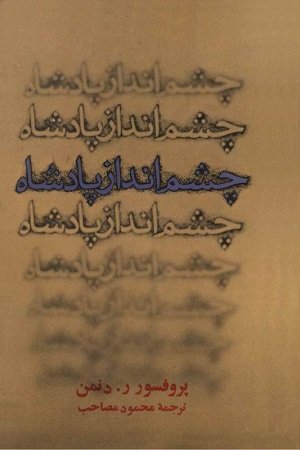 چشم‌انداز پادشاه
چشم‌انداز پادشاه
چشم‌انداز پادشاه
چشم‌انداز پادشاه
چشم‌انداز پادشاه
چشم‌انداز پادشاه
پروفسور ر. دنمن
ترجمهٔ محمود مصاحب